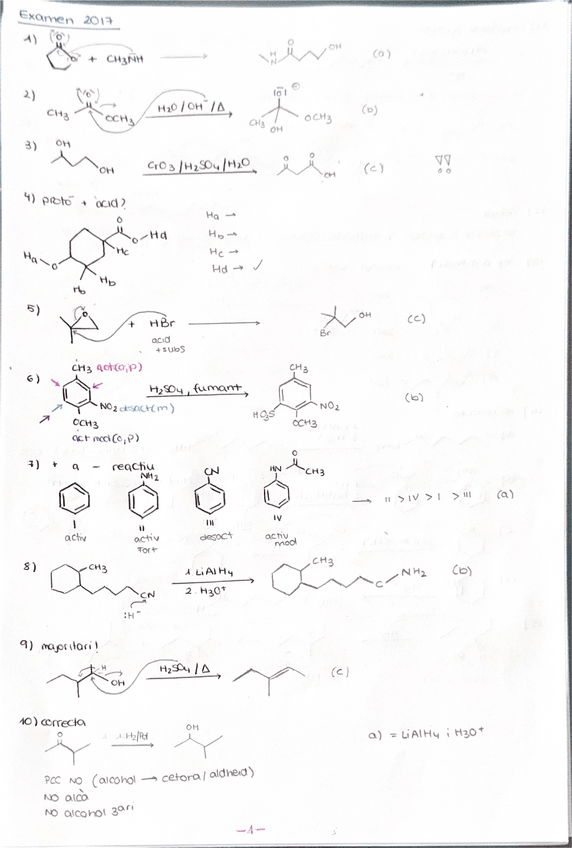 Examen 2017
1) (O) O + CH3NH → N H O OH (a)
2) (O) CH3 OCH3 H2O/OH⁻/Δ → |O| ⊖ CH3 OH OCH3 (b)
3) OH OH CrO3/H2SO4/H2O → O O OH (c) !!
4) protó + àcid?
Ha →
Hb →
Hc →
Hd → ✓
Ha O Hb Hb Hc O O Hd
5) O + HBr → Br OH (c)
acid
+subs
6) CH3 act(o,p) NO2 desact(m) OCH3 act mod(o,p) H2SO4, fumant → CH3 HO3S NO2 OCH3 (b)
7) + a - reactiu
NH2 CN HN O CH3
I II III IV → II > IV > I > III (a)
activ activ fort desact activ mod
8) CH3 CN :H⁻ 1. LiAlH4 2. H3O⁺ → CH3 C NH2 (b)
9) majoritari!
H OH H2SO4/Δ → (c)
10) correcta
O 1. H2/Pd → OH a) = LiAlH4 i H3O⁺
PCC NO (alcohol → cetona/aldheid)
NO alcà
NO alcohol 3ari
-1-